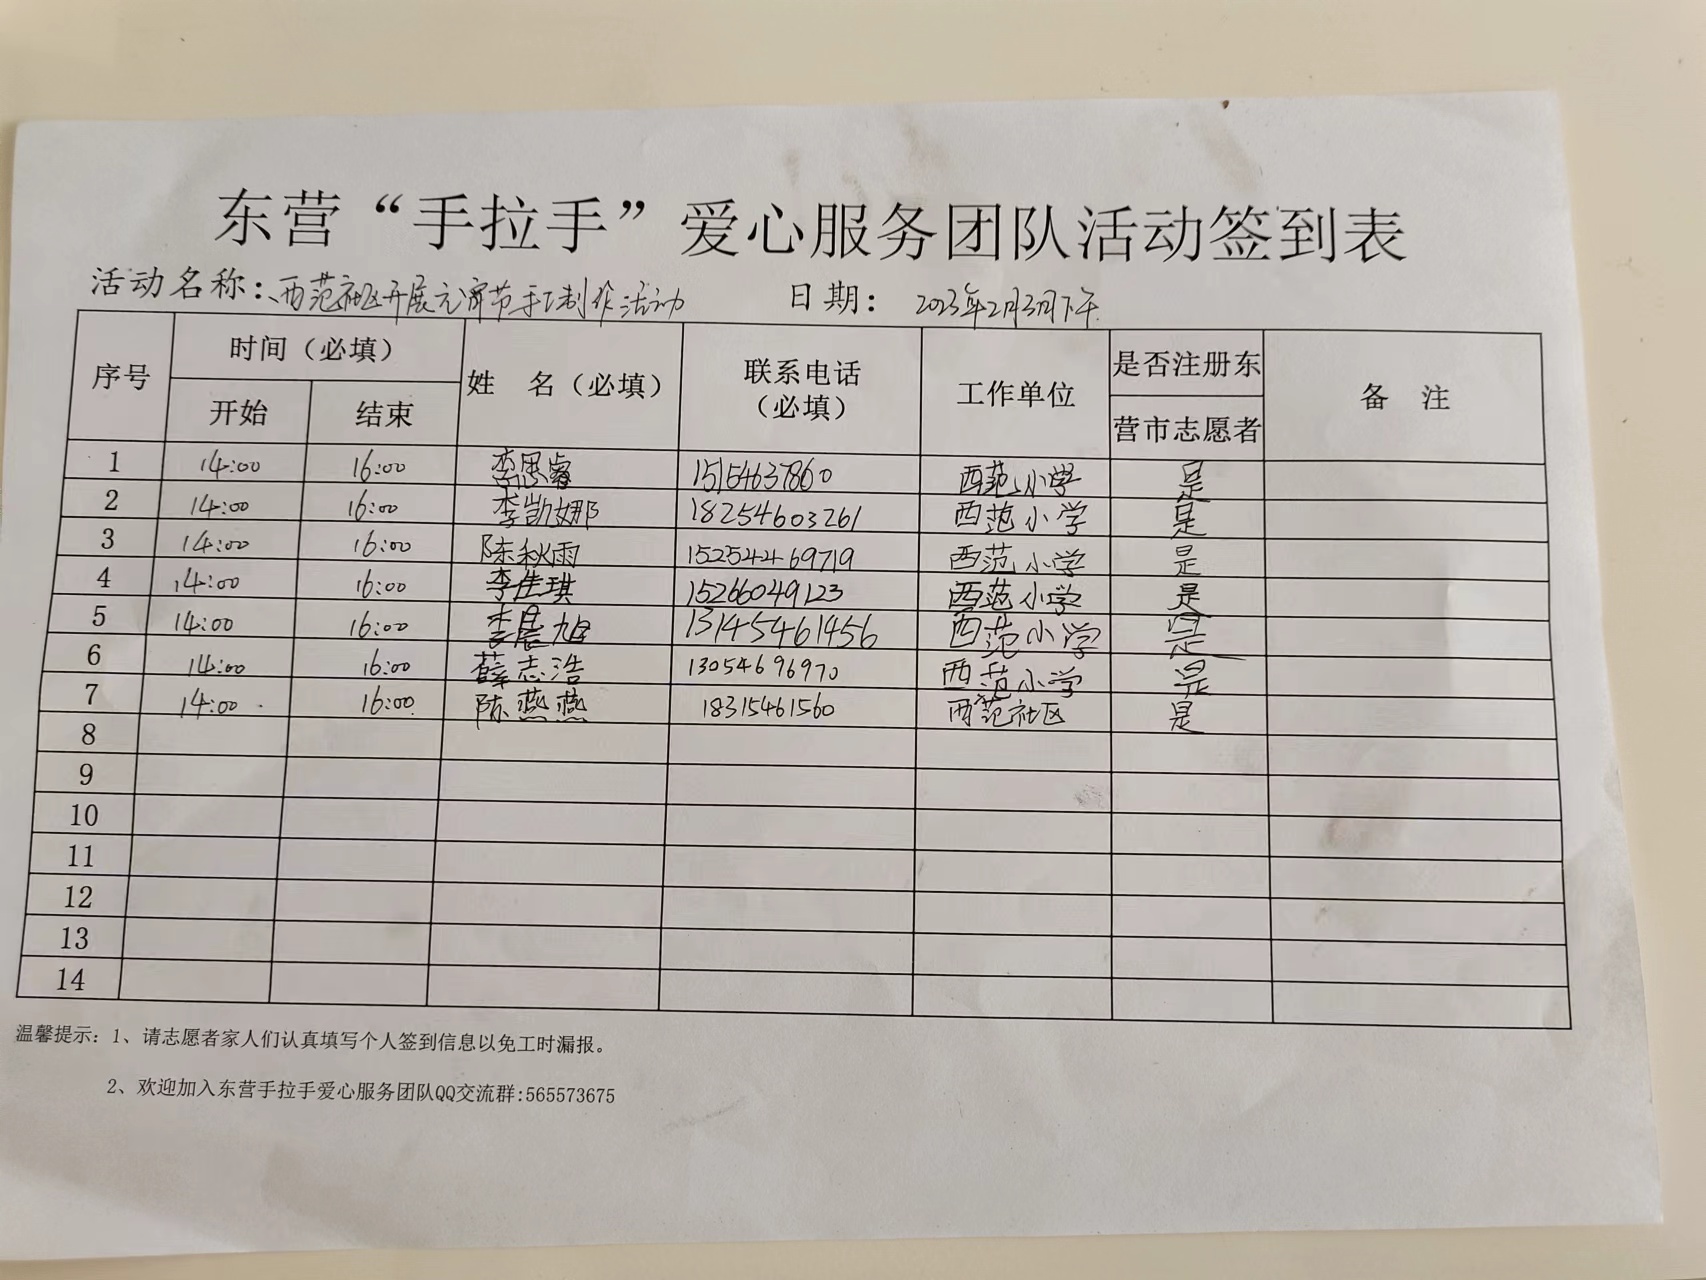 东营“手拉手”爱心服务团队活动签到表
活动名称：西范社区开展元宵节手工制作活动 日期： 2023年2月3日下午
序号 时间（必填） 姓 名（必填） 联系电话（必填） 工作单位 是否注册东营市志愿者 备 注
开始 结束
1 14:00 16:00 李思睿 15154637860 西范小学 是
2 14:00 16:00 李凯娜 18254603261 西范小学 是
3 14:00 16:00 陈秋雨 15254469719 西范小学 是
4 14:00 16:00 李佳琪 15266049123 西范小学 是
5 14:00 16:00 李晨旭 13145461456 西范小学 是
6 14:00 16:00 薛志浩 13054696970 西范小学 是
7 14:00 16:00 陈燕燕 18315461560 西范社区 是
8
9
10
11
12
13
14
温馨提示：1、请志愿者家人们认真填写个人签到信息以免工时漏报。
2、欢迎加入东营手拉手爱心服务团队QQ交流群:565573675